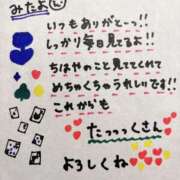 みたよ
いつもありがとーっ!!
しっかり毎日見てるよ!!
ちはやのこと見てくれてて
めちゃくちゃうれしいです!!
これからも
たっっっくさん
よろしくね